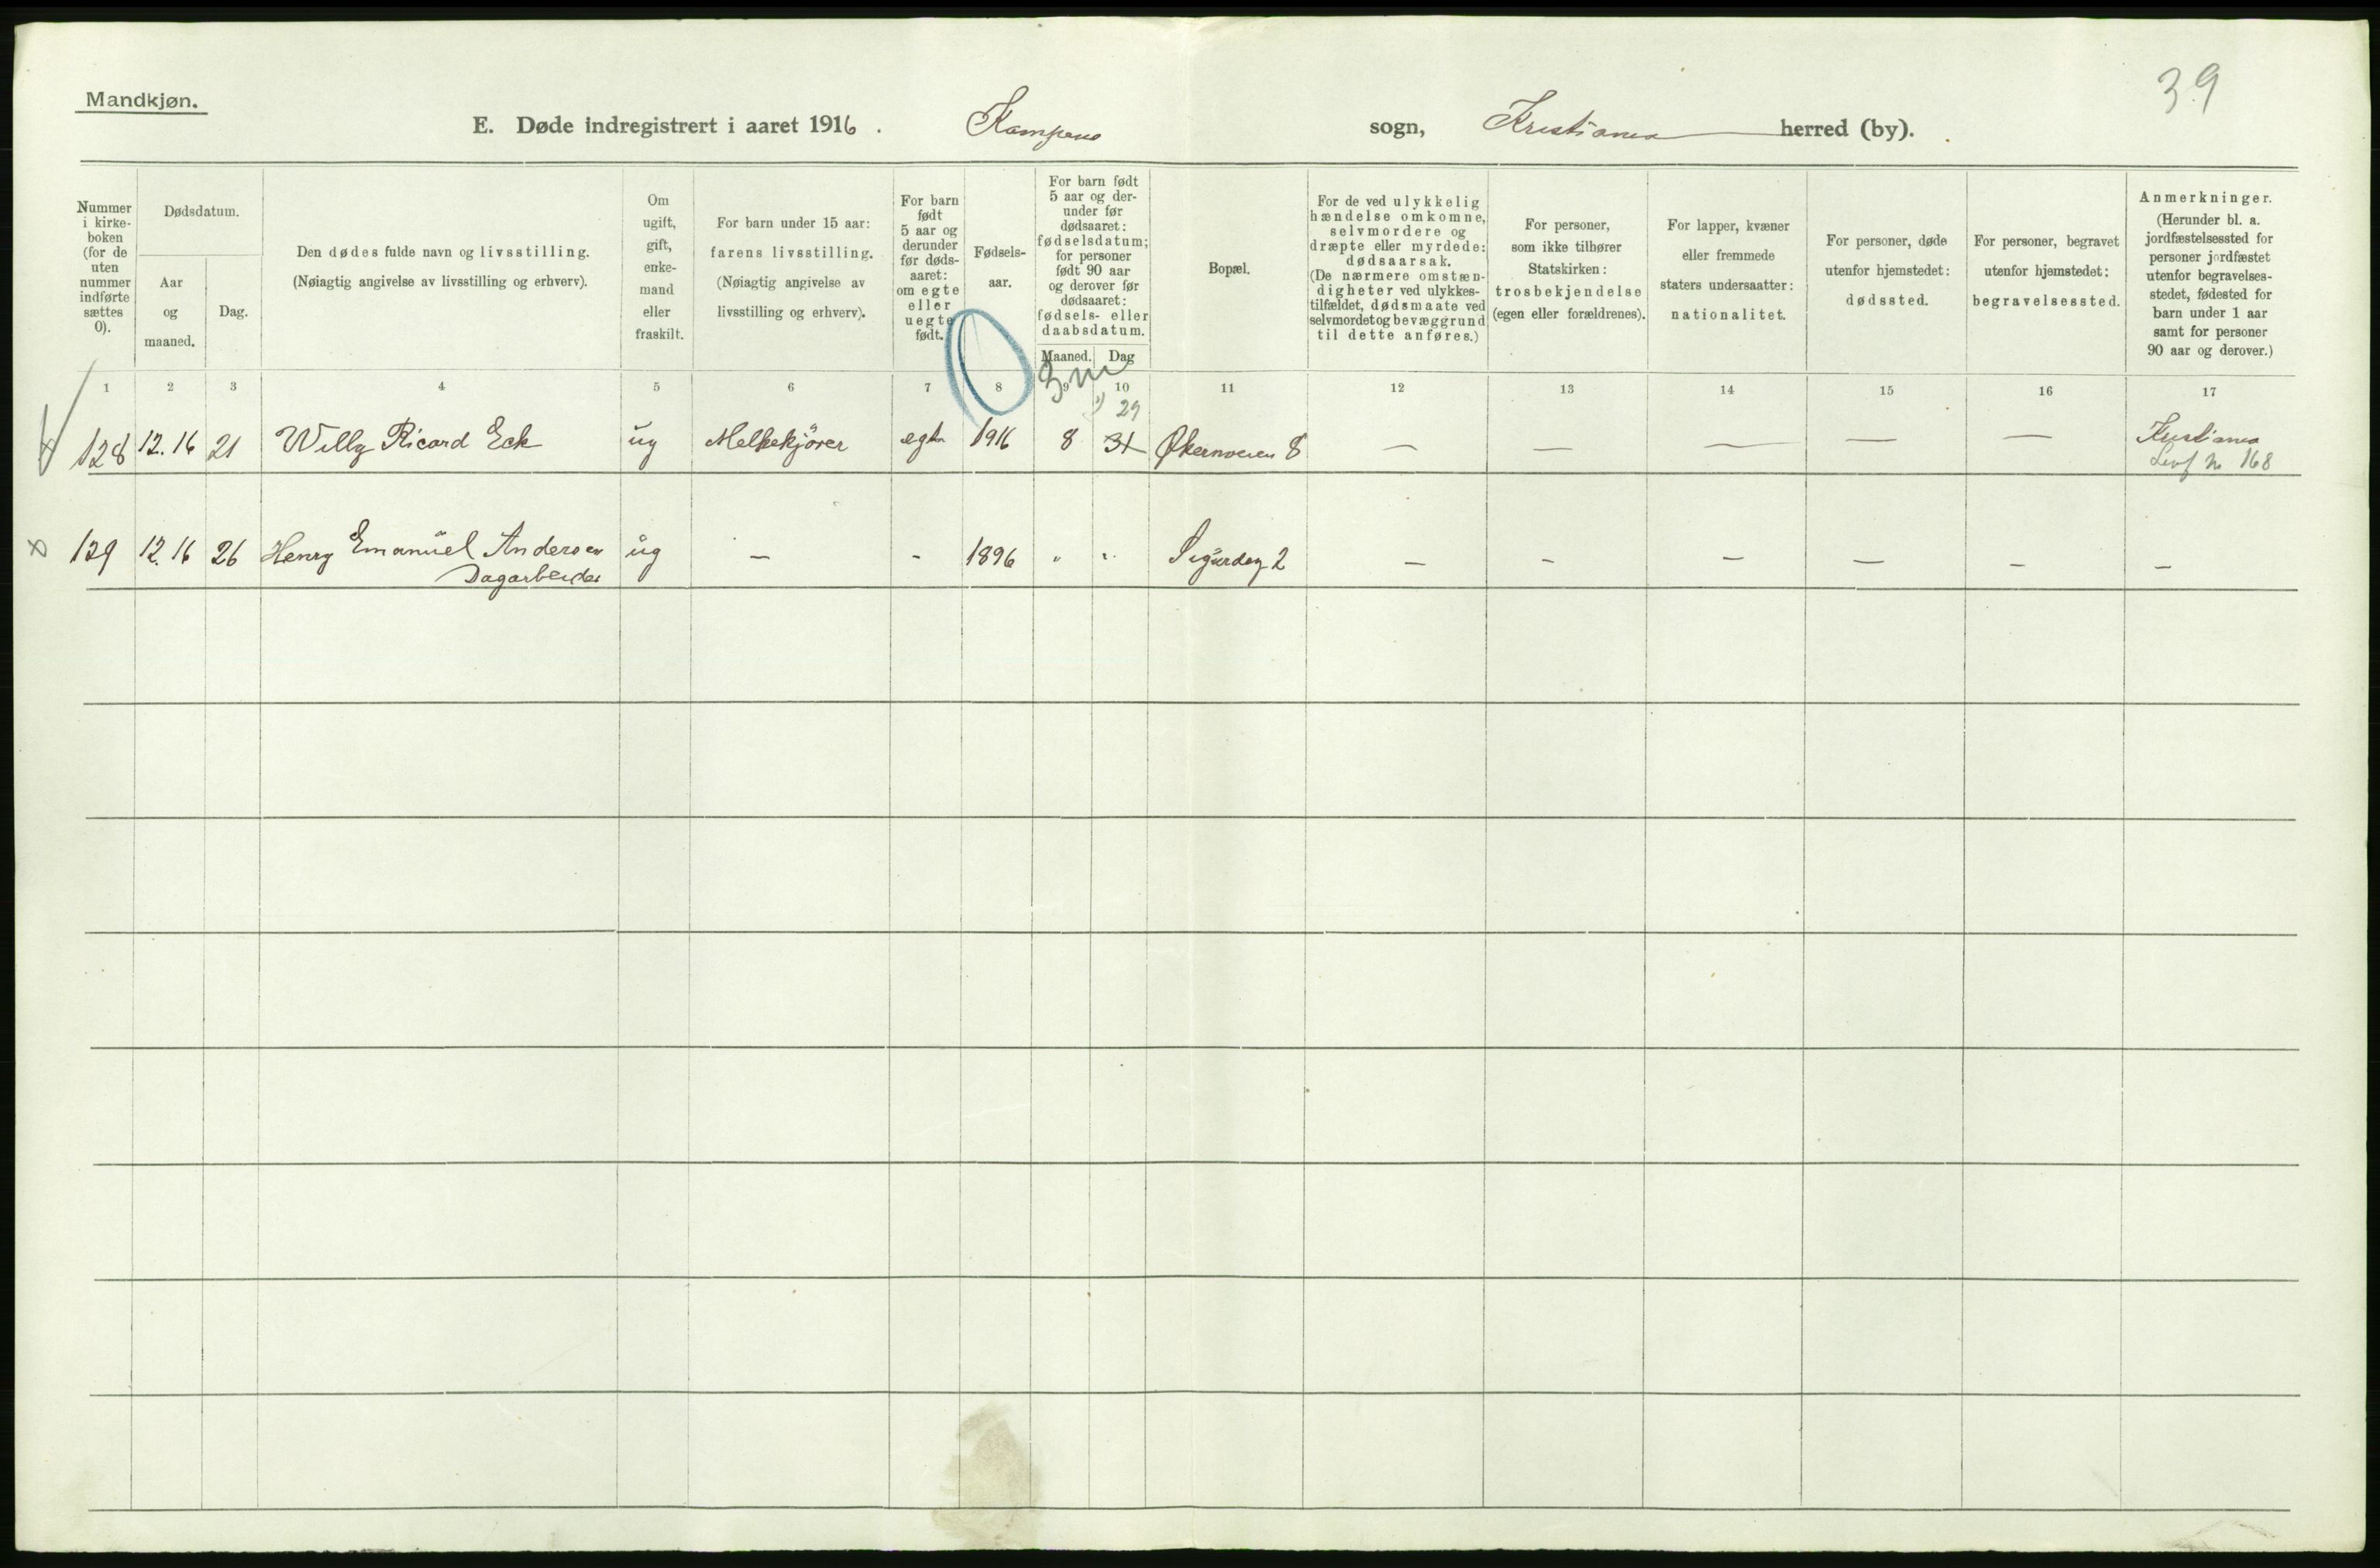 39
Mandkjøn.
E. Døde indregistrert i aaret 1916. Kampens sogn, Kristiania herred (by).
Nummer
i kirke-
boken
(for de
uten
nummer
indførte
sættes
0).
Dødsdatum.
Aar
og
maaned.
Dag.
Den dødes fulde navn og livsstilling.
(Nøiagtig angivelse av livsstilling og erhverv).
Om
ugift,
gift,
enke-
mand
eller
fraskilt.
For barn under 15 aar:
farens livsstilling.
(Nøiagtig angivelse av
livsstilling og erhverv).
For barn
født
5 aar og
derunder
før døds-
aaret:
om egte
eller
uegte
født.
Fødsels-
aar.
For barn født
5 aar og der-
under før
dødsaaret:
fødselsdatum;
for personer
født 90 aar
og derover før
dødsaaret:
fødsels- eller
daabsdatum.
Maaned. Dag
Bopæl.
For de ved ulykkelig
hændelse omkomne,
selvmordere og
dræpte eller myrdede:
dødsaarsak.
(De nærmere omstæn-
digheter ved ulykkes-
tilfældet, dødsmaate ved
selvmordet og bevæggrund
til dette anføres.)
For personer,
som ikke tilhører
Statskirken:
trosbekjendelse
(egen eller forældrenes).
For lapper, kvæner
eller fremmede
staters undersaatter:
nationalitet.
For personer, døde
utenfor hjemstedet:
dødssted.
For personer, begravet
utenfor hjemstedet:
begravelsessted.
Anmerkninger.
(Herunder bl. a.
jordfæstelsessted for
personer jordfæstet
utenfor begravelses-
stedet, fødested for
barn under 1 aar
samt for personer
90 aar og derover.)
0 3 m
1 2 3 4 5 6 7 8 9 10 11 12 13 14 15 16 17
29
128 12.16 21 Willy Ricard Eck ug Melkekjører egte 1916 8 31 Økernveien 8 — — — — — Kristiania
No 168
129 12.16 26 Henry Emanuel Andersen ug — - 1896 " " Sigurdsg 2 — — — — — —
Dagarbeider